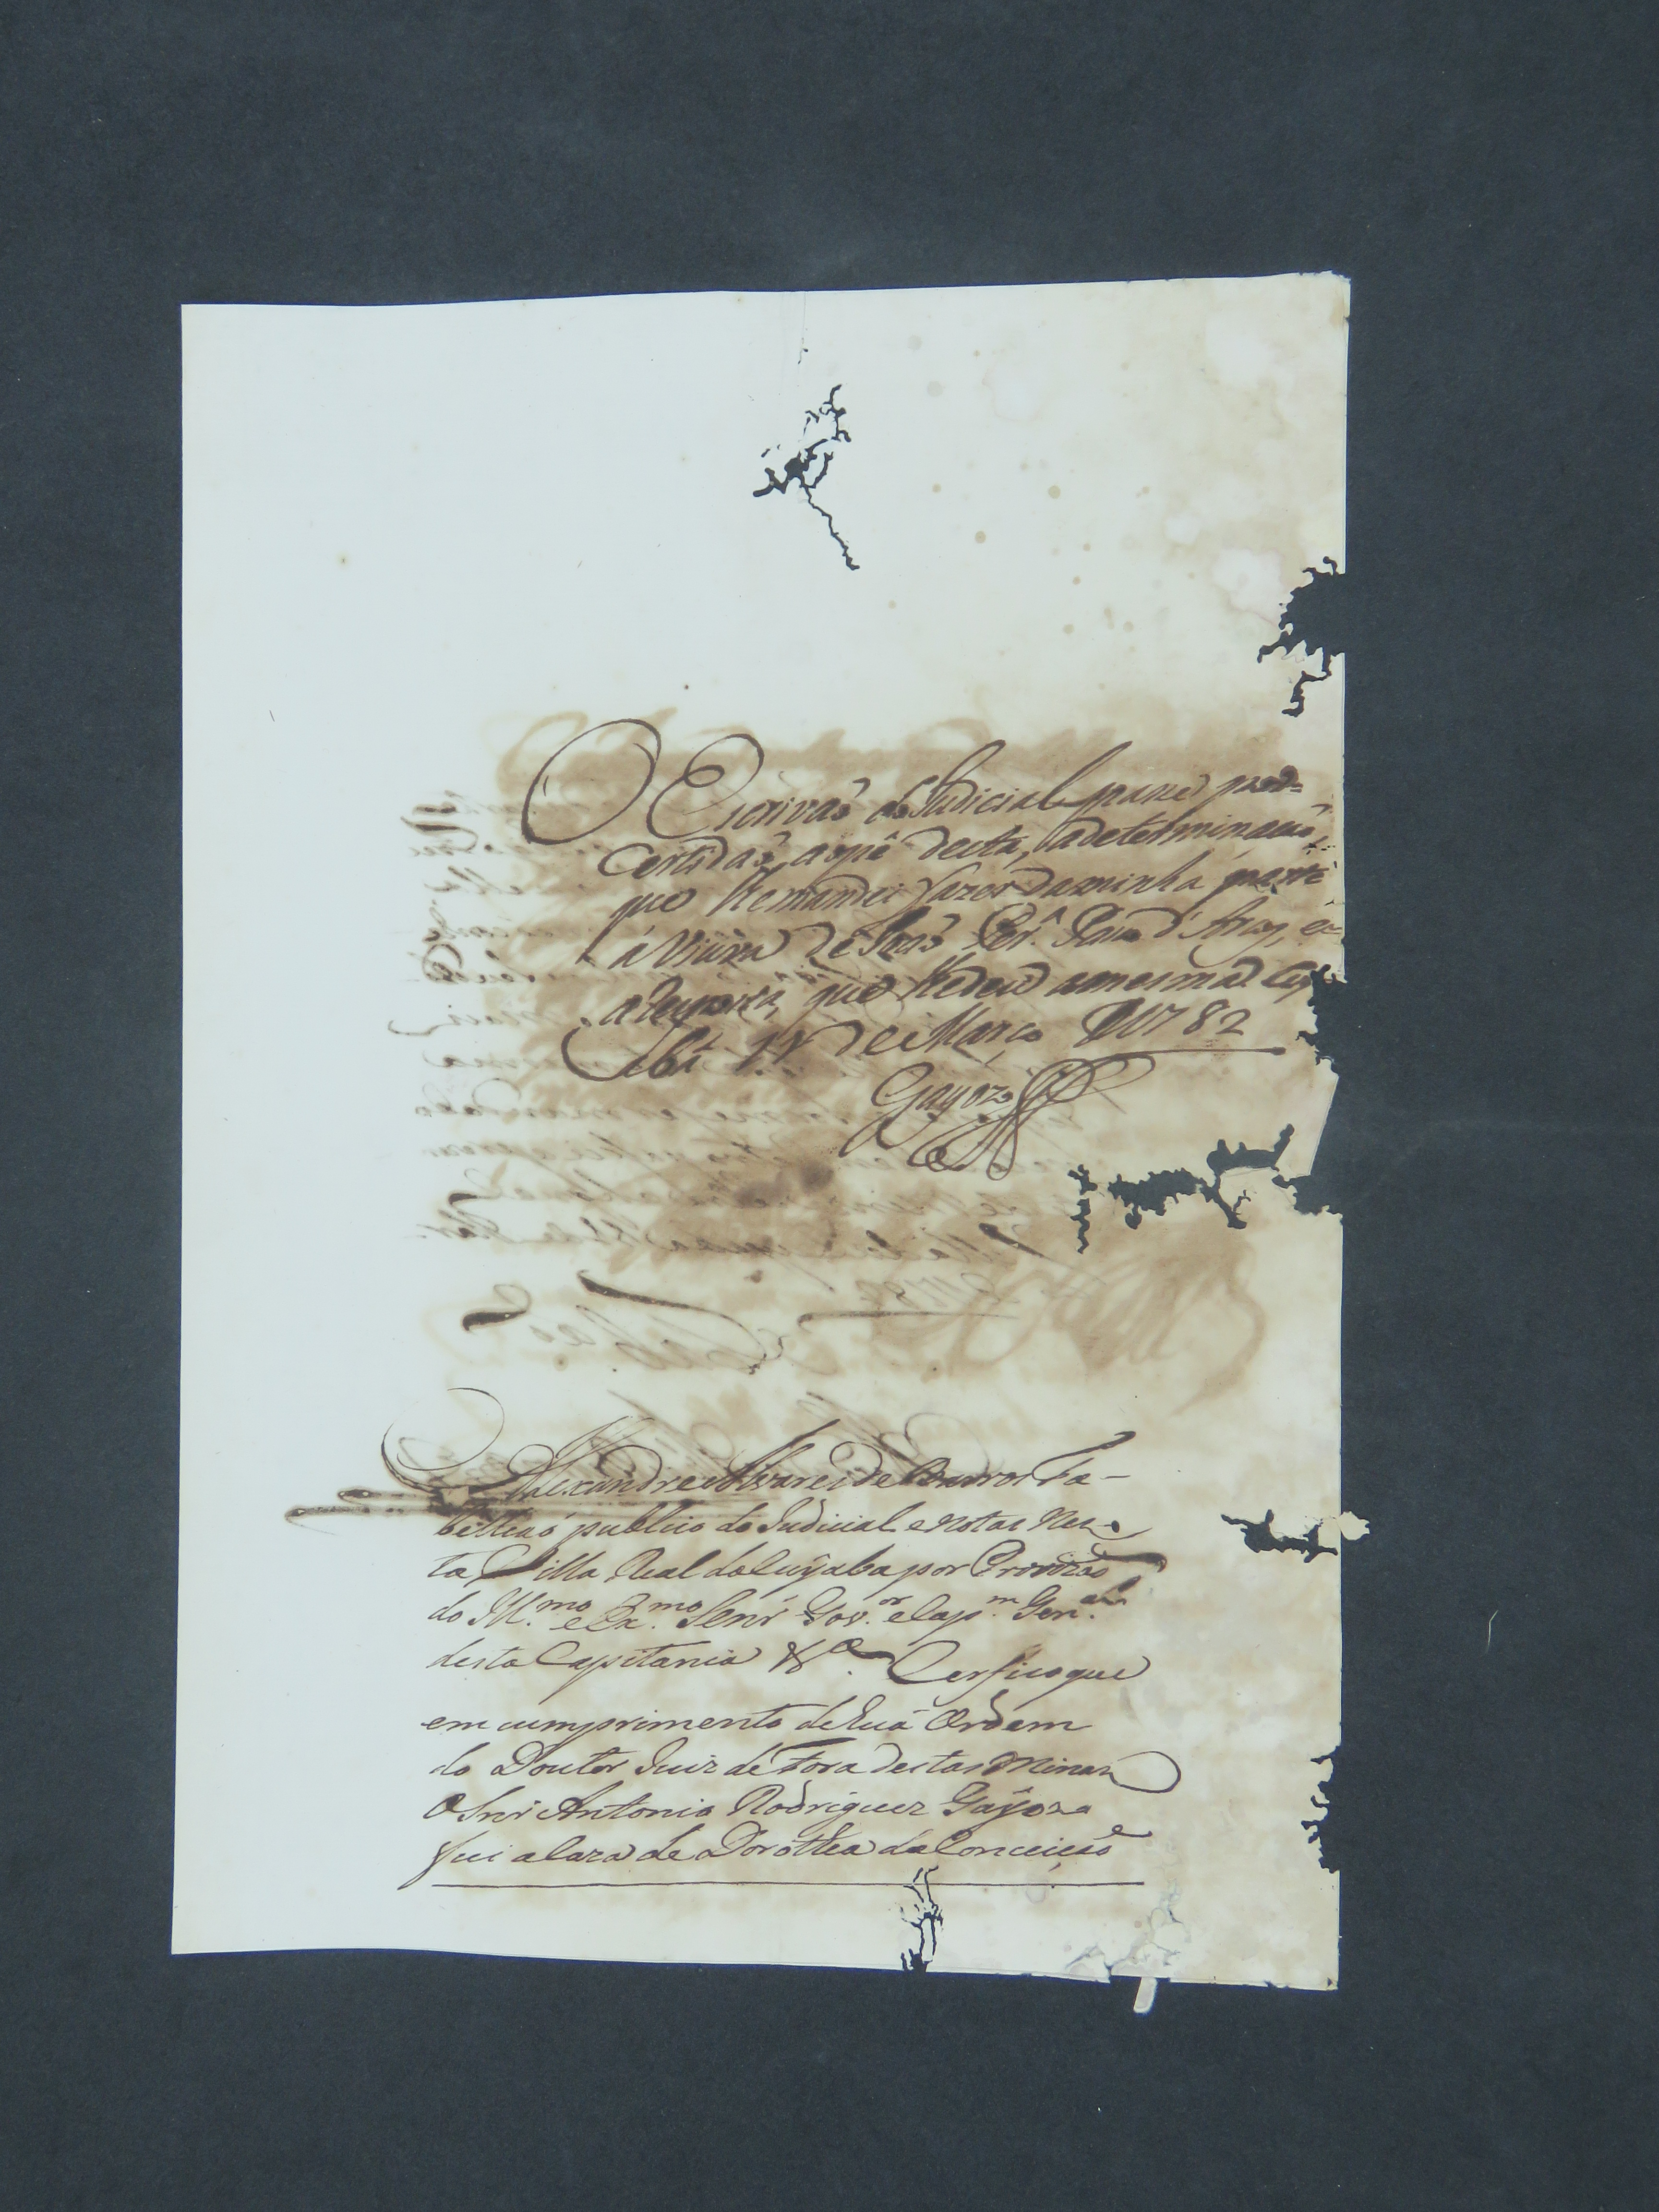 O Escrivaõ do Judicial passe por
certidaõ, ao pê desta, a determinaçaõ,
que lhe mandei fazer da minha parte
á Viuva de Joaõ Per.ª Paes d'
a reposta, que lhe deu a mesma
Cbá 17 de Março 1782
Gayozo
Alexandre Alvares de Barros Ta-
belleaõ publico do Judicial e Notas Nes-
ta Villa Real do Cuyaba por Provizaõ
do Ill.mo e Ex.mo Senr Gov.or e Cap.m Gen.al
desta Capitania &ª Cerfico que
em cumprimento de huã Ordem
do Doutor Juiz de Fora destas Minas
O Snr Antonio Rodriguez Gaÿozo
fui a caza de Dorothea da Conceicaõ